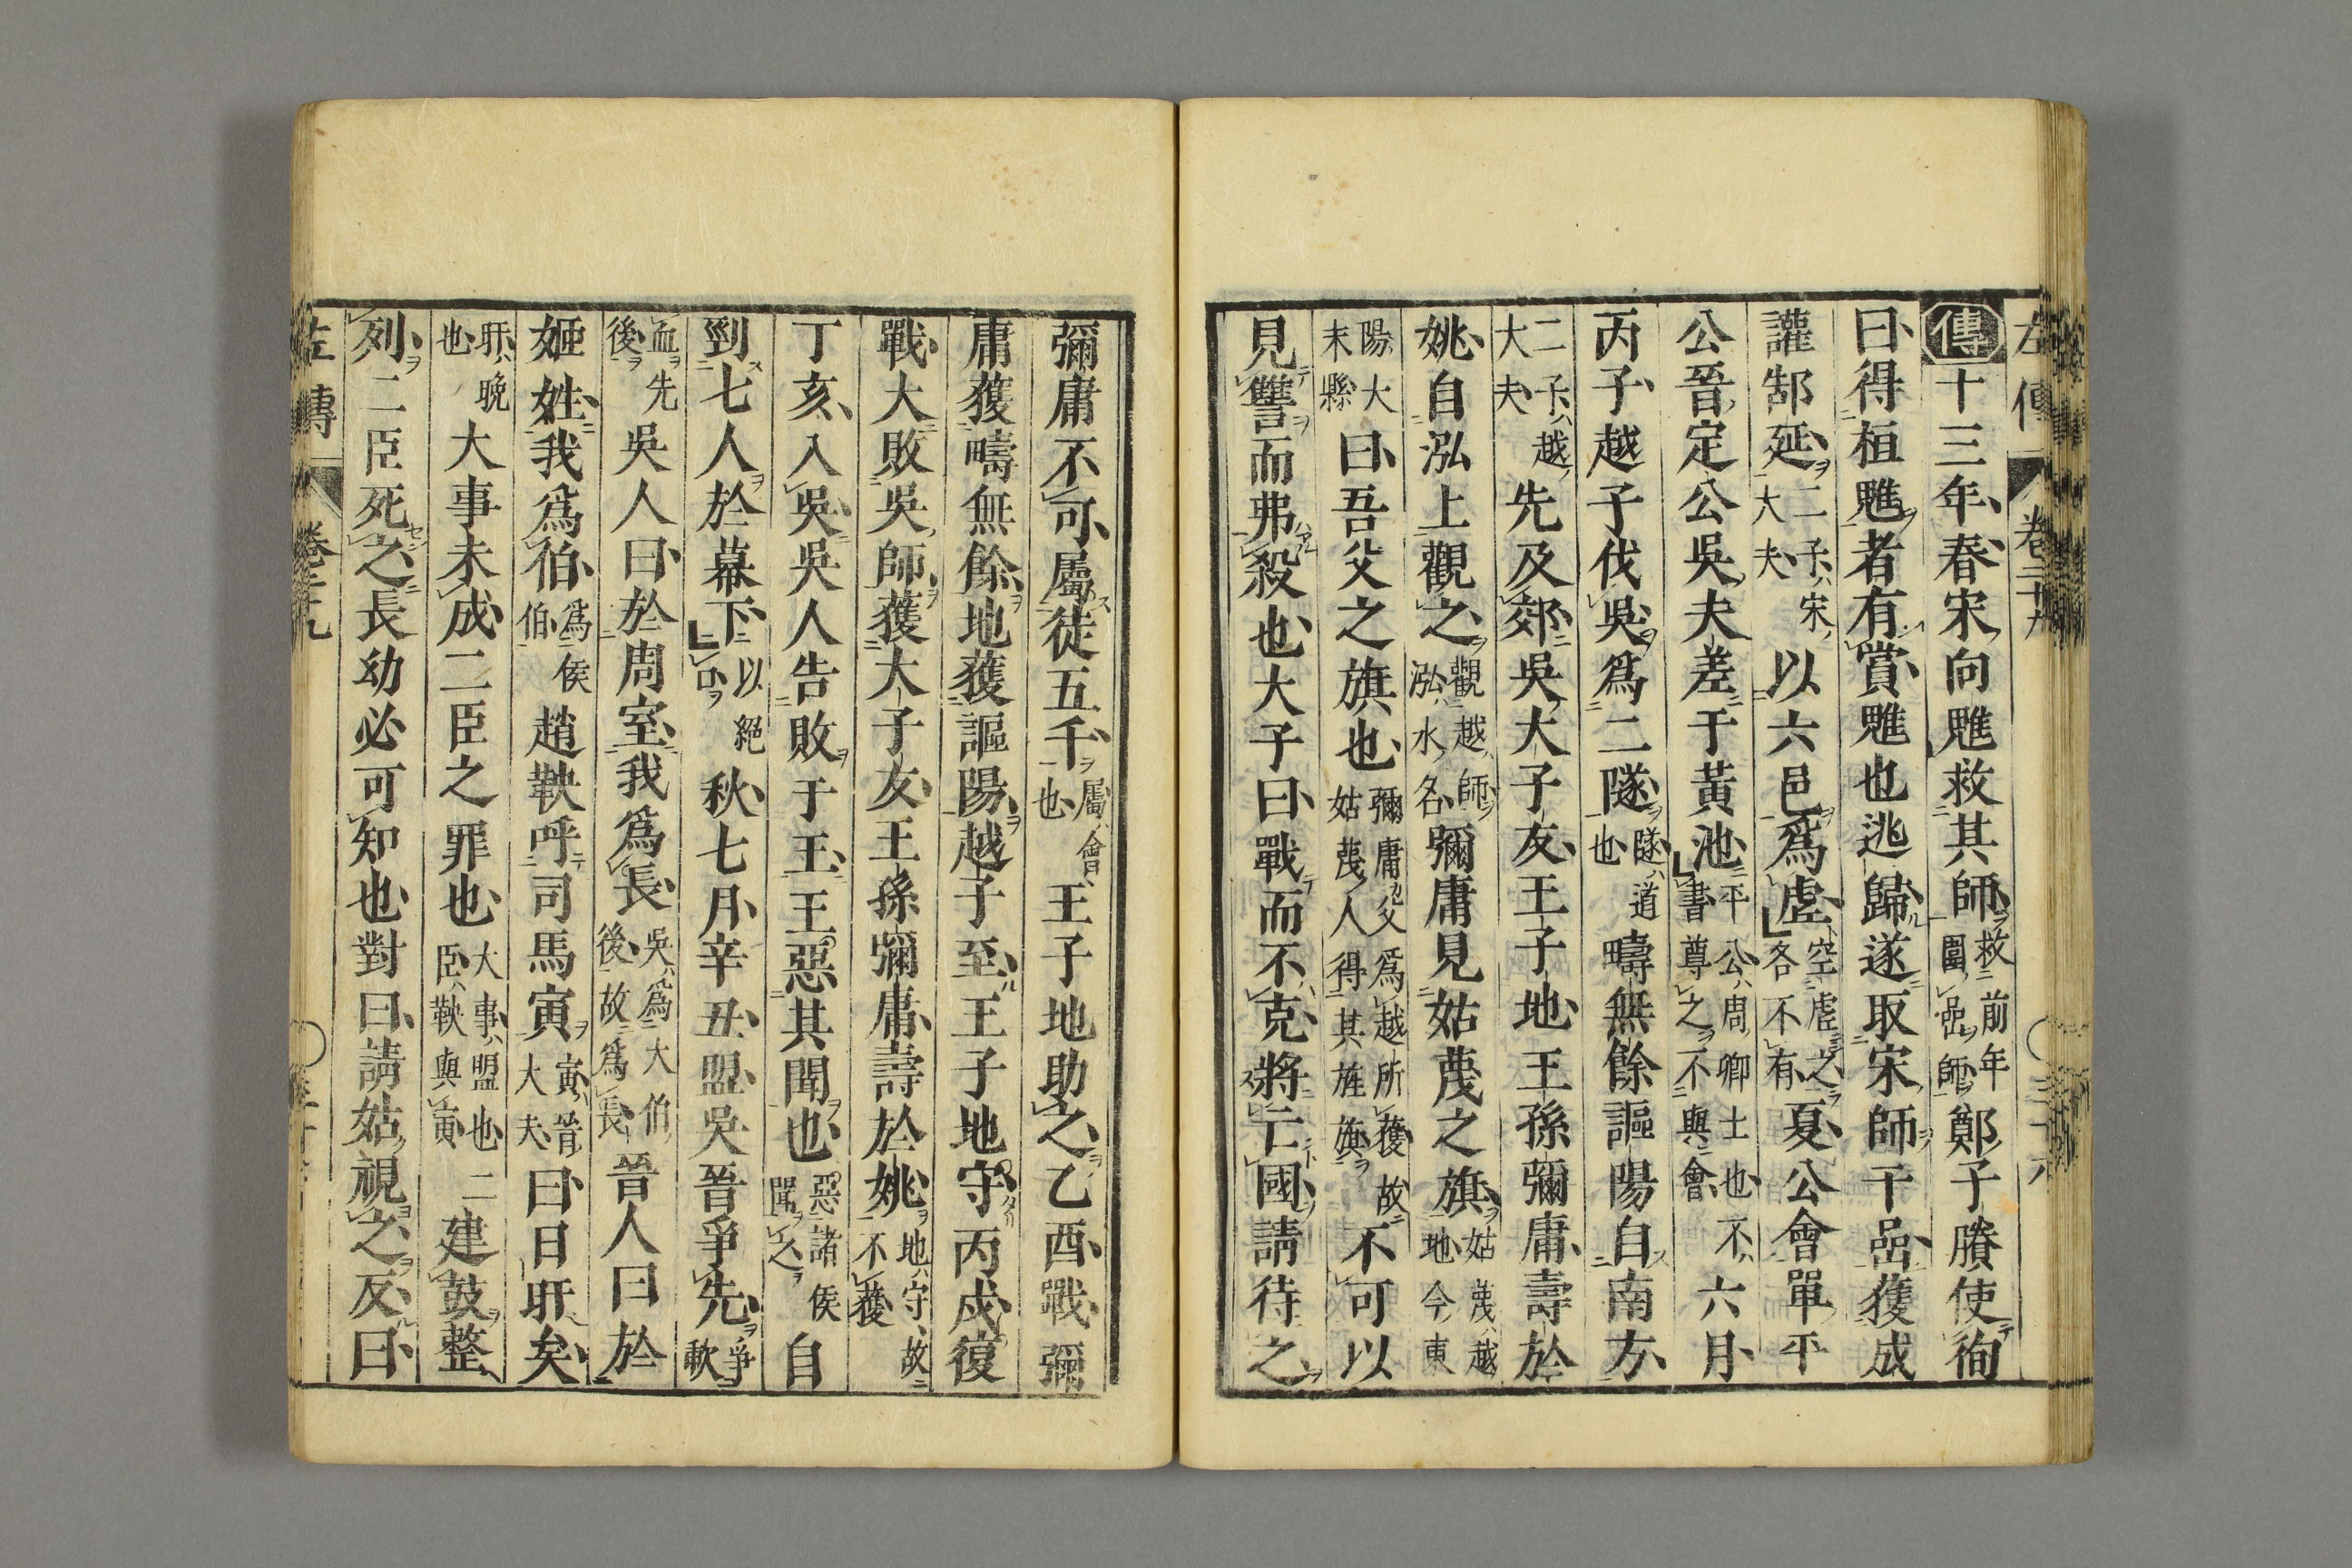 傳十三年春宋向魋救其師救前年圍嵒師鄭子賸使徇
曰得桓魋者有賞魋也逃歸遂取宋師于嵒獲成
讙郜延二子宋大夫以六邑爲虛空虛之各不有夏公會單平
公晉定公吳夫差于黃池平公周卿士也不書尊之不與會六月
丙子越子伐吳爲二隧隧道也疇無餘謳陽自南方
二子越大夫先及郊吳大子友王子地王孫彌庸壽於
姚自泓上觀之觀越師泓水名彌庸見姑蔑之旗姑蔑越地今東
陽大末縣曰吾父之旗也彌庸父爲越所獲故姑蔑人得其旌旗不可以
見讐而弗殺也大子曰戰而不克將亡國請待之
彌庸不可屬徒五千屬會也王子地助之乙酉戰彌
庸獲疇無餘地獲謳陽越子至王子地守丙戌復
戰大敗吳師獲大子友王孫彌庸壽於姚地守故不獲
丁亥入吳吳人告敗于王王惡其聞也惡諸侯聞之自
剄七人於幕下以絕口秋七月辛丑盟吳晉爭先爭歃
血先後吳人曰於周室我爲長吳爲大伯後故爲長晉人曰於
姬姓我爲伯爲侯伯趙鞅呼司馬寅寅晉大夫曰日旰矣
旰晚也大事未成二臣之罪也大事盟也二臣鞅與寅建鼓整
列二臣死之長幼必可知也對曰請姑視之反曰
左傳 卷二十九